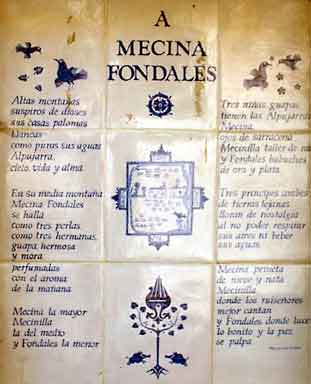 A
MECINA
FONDALES
Altas montañas
suspiros de dioses
sus casas palomas
blancas
como puras sus aguas
Alpujarra,
cielo, vida y alma.
En su media montaña
Mecina Fondales
se halla
como tres perlas,
como tres hermanas,
guapa, hermosa
y mora
perfumadas
con el aroma
de la mañana
Mecina la mayor
Mecinilla
la del medio
y Fondales la menor
Tres niñas guapas
tienen las Alpujarras
Mecina,
ojos de sarracena
Mecinilla taller de
y Fondales babuchas
de oro y plata.
Tres príncipes árabes
de tierras lejanas
lloran de nostalgia
al no poder respirar
sus aires ni beber
sus aguas.
Mecina perneta
de nieve y nata
Mecinilla
donde los ruiseñores
mejor cantan
y Fondales donde luce
lo bonito y la paz
se palpa.